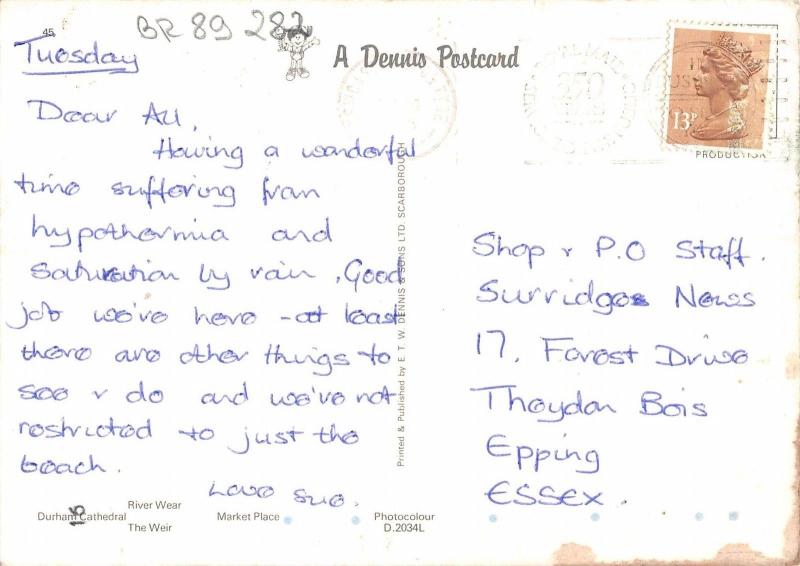 45
BR 89 282
A Dennis Postcard
Tuesday
Dear All,
Having a wonderful
time suffering from
hypothermia and
saturation by rain. Good
job we've here - at least
there are other things to
see & do and we've not
restricted to just the
beach.
Love Sue.
13P
PRODUCTION
Printed & Published by E. T. W. DENNIS & SONS LTD. SCARBOROUGH
Shop & P.O Staff.
Surridges News
17, Forest Drive
Theydon Bois
Epping
ESSEX.
River Wear
Durham Cathedral
Market Place
Photocolour
The Weir
D.2034L